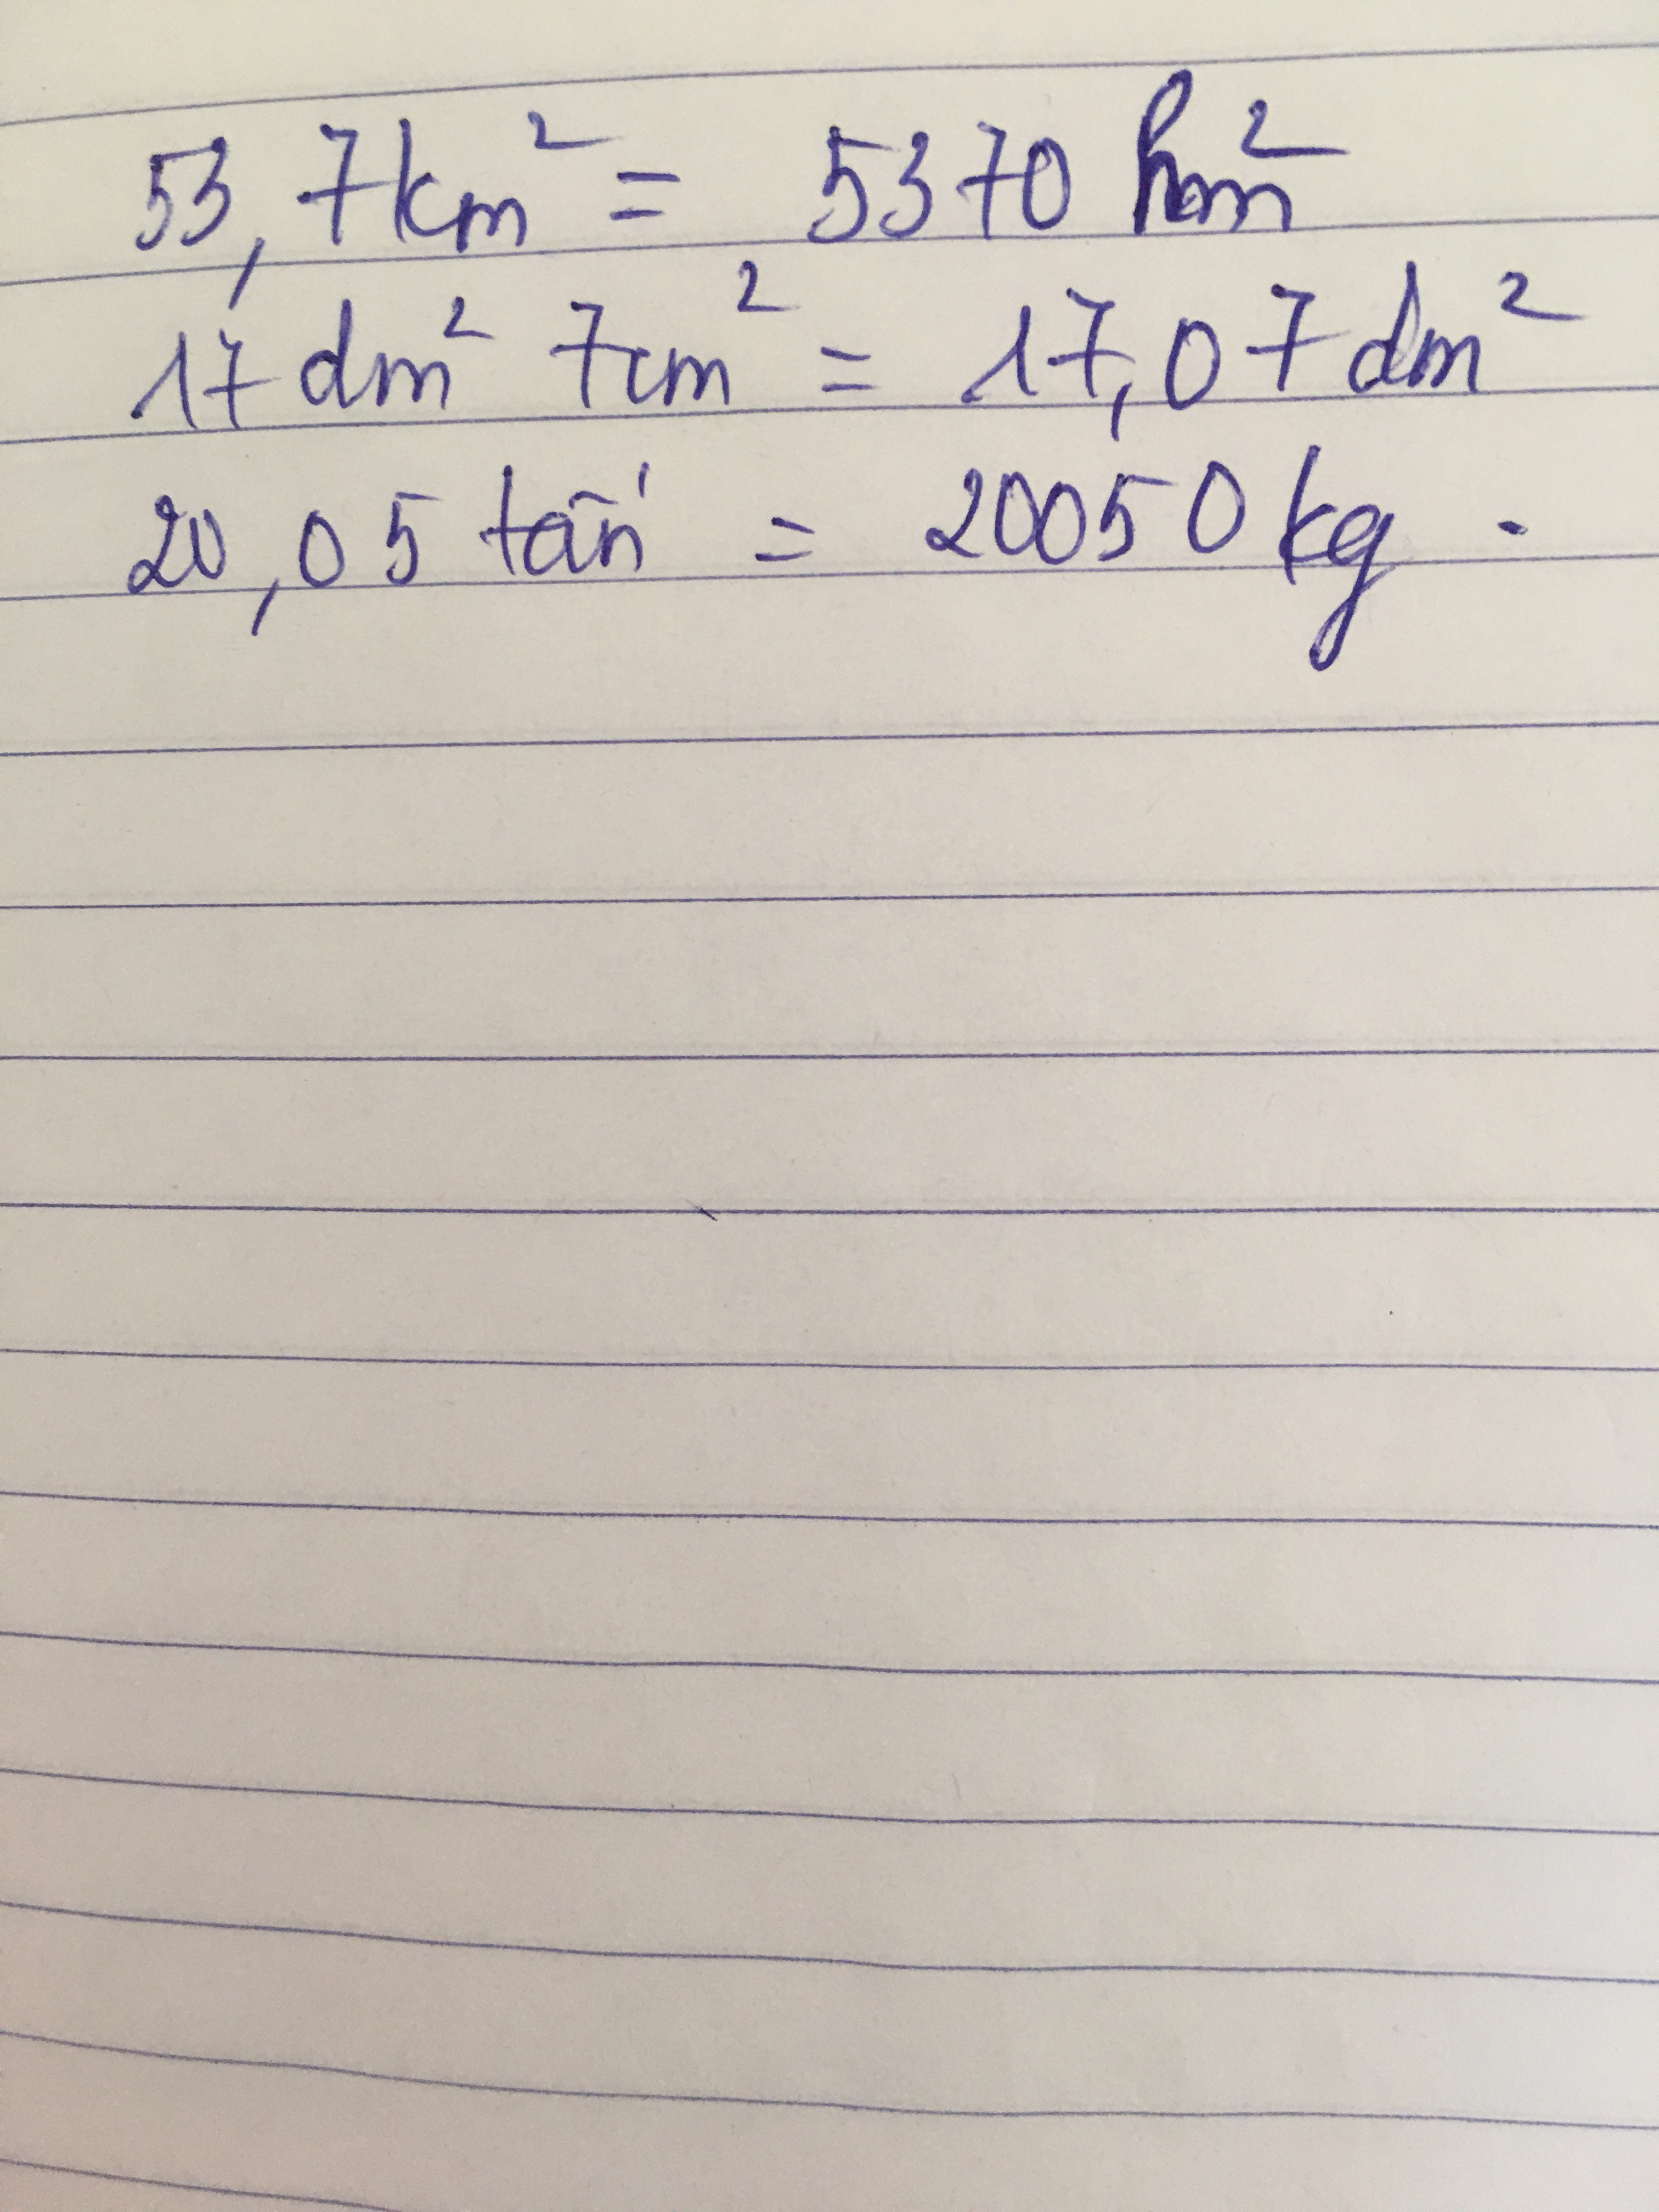 53,7km² = 5370 hm²
17 dm² 7cm² = 17,07 dm²
20,05 tấn = 20050 kg .